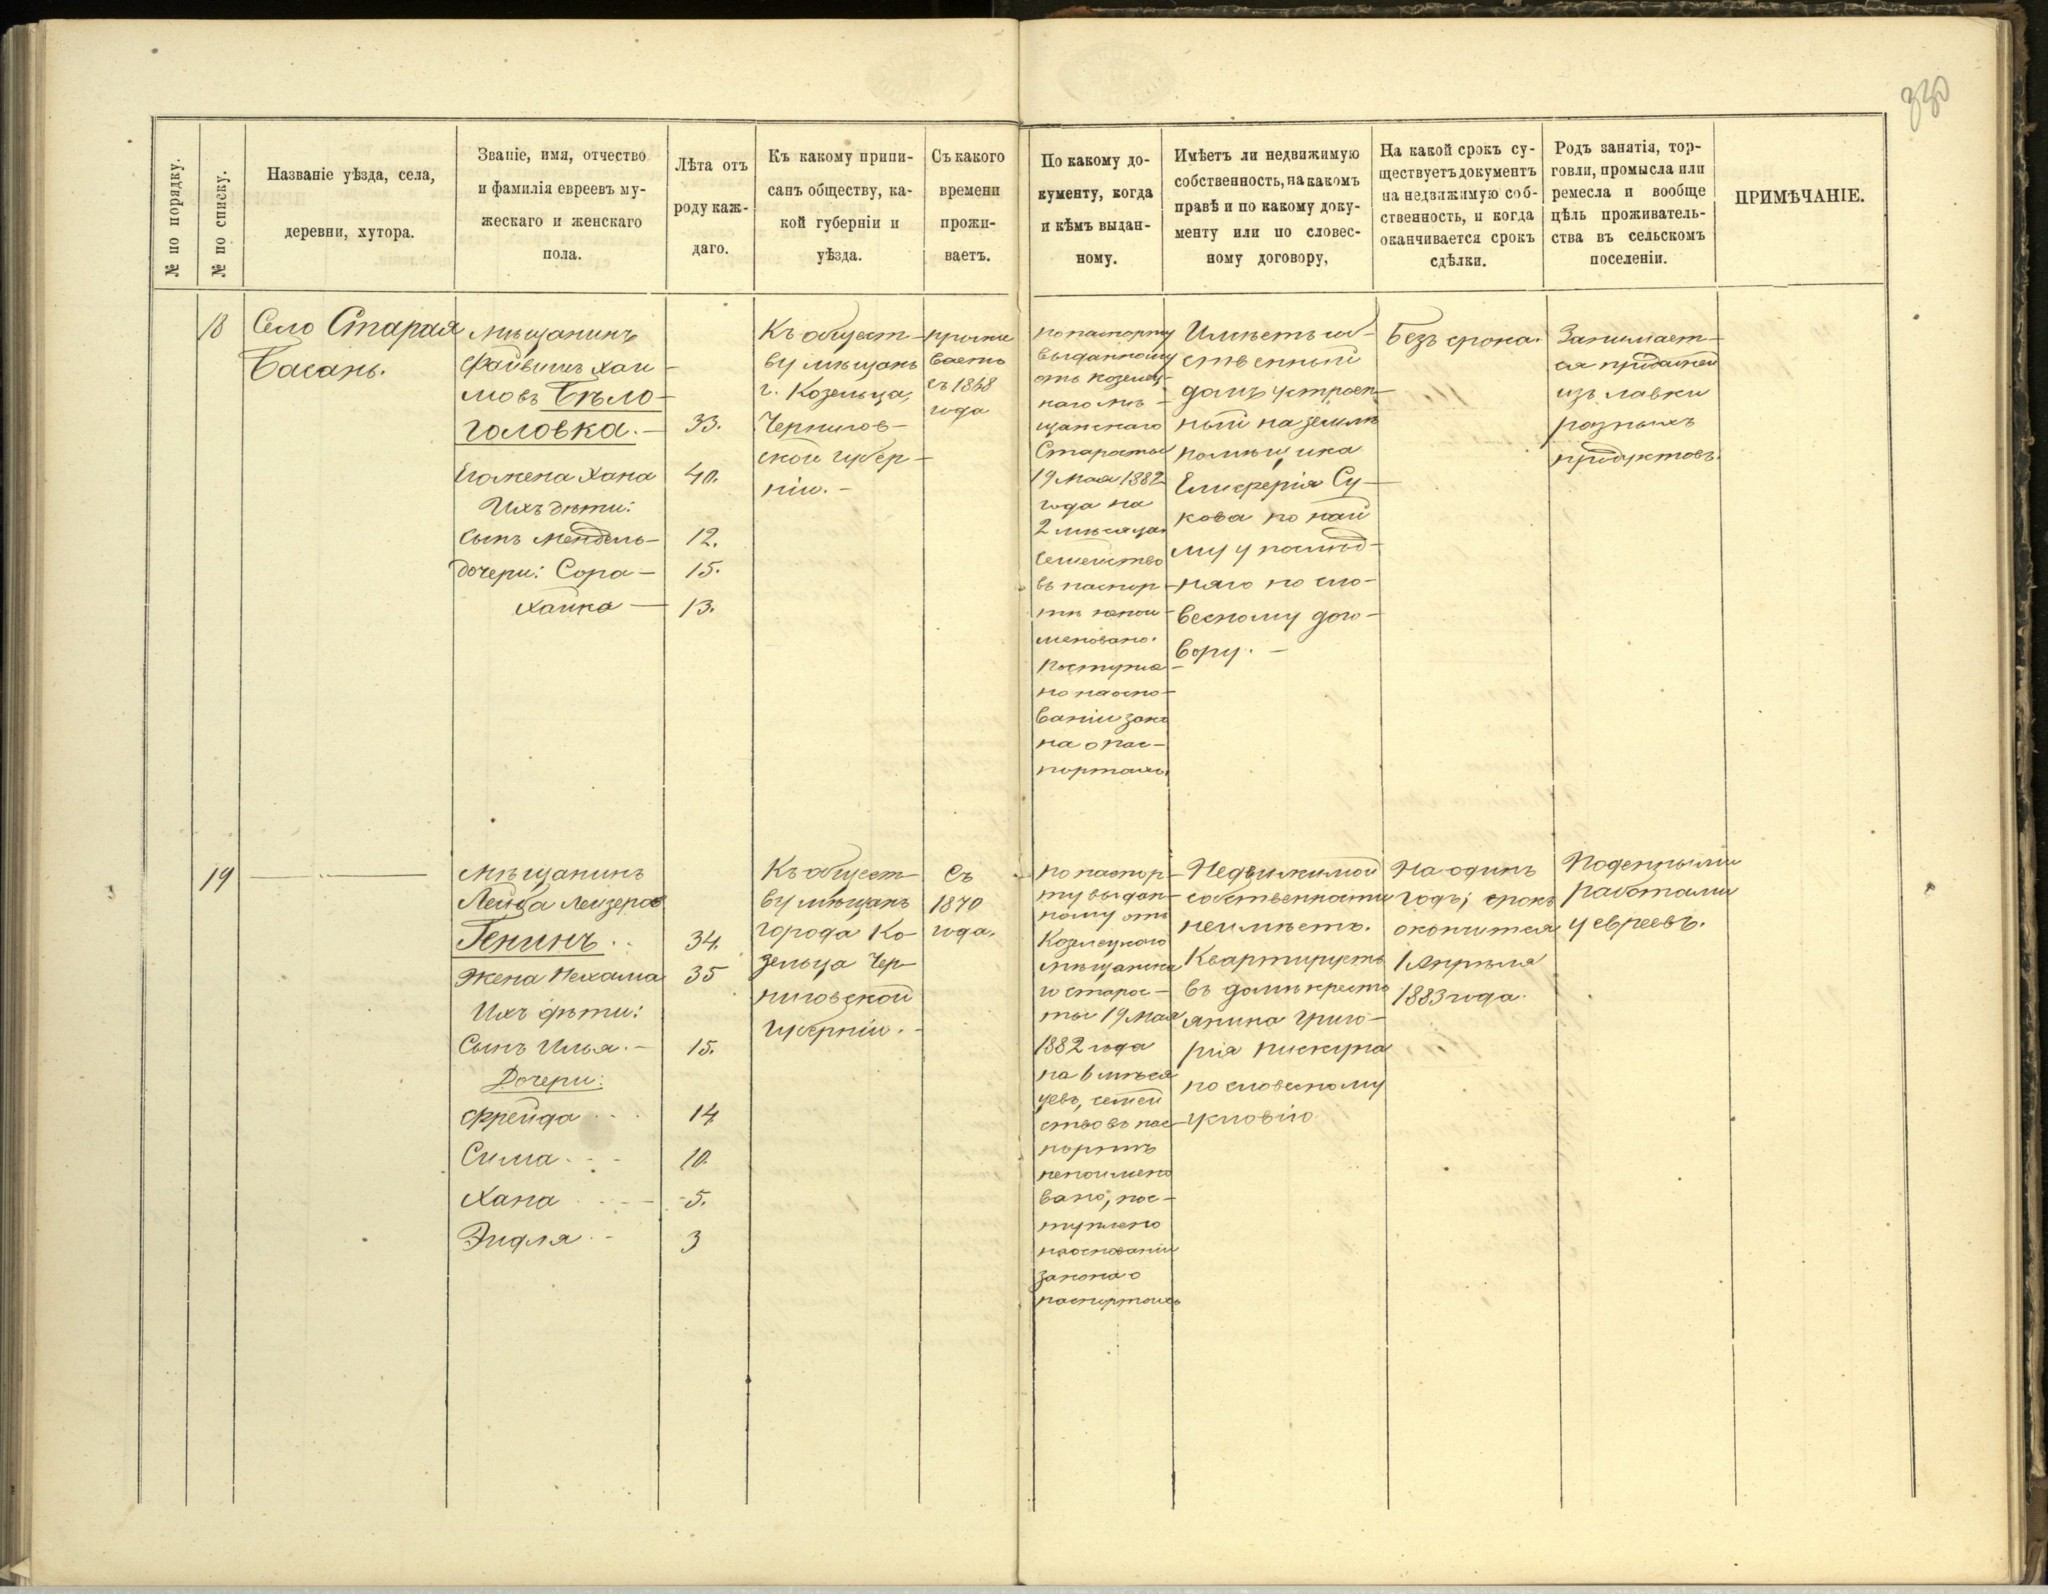 330
№ по порядку.
№ по списку.
Названіе уѣзда, села,
деревни, хутора.
Званіе, имя, отчество
и фамилія евреевъ му-
жескаго и женскаго
пола.
Лѣта отъ
роду каж-
даго.
Къ какому припи-
санъ обществу, ка-
кой губерніи и
уѣзда.
Съ какого
времени
прожи-
ваетъ.
По какому до-
кументу, когда
и кѣмъ выдан-
ному.
Имѣетъ ли недвижимую
собственность, на какомъ
правѣ и по какому доку-
менту или по словес-
ному договору,
На какой срокъ су-
ществуетъ документъ
на недвижимую соб-
ственность, и когда
оканчивается срокъ
сдѣлки.
Родъ занятія, тор-
говли, промысла или
ремесла и вообще
цѣль проживатель-
ства въ сельскомъ
поселеніи.
ПРИМѢЧАНІЕ.
18
Село Старая
Басань.
Мѣщанинъ
Файвишъ Хаи-
мовъ Бѣло-
головка. — 33.
Его жена Хана 40.
Ихъ дѣти:
Сынъ Мендель — 12.
Дочери: Сора — 15.
Хайка — 13.
Къ общест-
ву мѣщанъ
г. Козельца,
Чернигов-
ской губер-
ніи. —
прожи
ваетъ
съ 1868
года
по паспорту
выданному
отъ Козелец-
каго мѣ-
щанскаго
Старосты
19 Мая 1882
года на
2 мѣсяца.
Семейство
въ паспор-
тѣ непои-
меновано.
Поступле-
но на осно-
ваніи зако
на о пас-
портахъ.
Имѣетъ соб-
ственный
домъ устроен-
ный на землѣ
помѣщика
Елиферія Су-
кова по най
му у послѣд-
няго по сло-
весному дого-
вору. —
Безъ срока.
Занимает-
ся продажей
изъ лавки
разныхъ
продуктовъ.
19
Мѣщанинъ
Лейба Лейзеров
Генинъ . . 34.
Жена Нехама 35
Ихъ дѣти:
Сынъ Илья. — 15.
Дочери:
Фрейда . . . 14
Сима . - - 10.
Хана . - - - 5.
Эйдля . - 3
Къ общест-
ву мѣщанъ
города Ко-
зельца Чер-
ниговской
губерніи. -
Съ
1870
года.
по паспор-
ту выдан-
ному отъ
Козелецкаго
мѣщанска
го старос-
ты 19 Мая
1882 года
на 6 мѣся
цевъ, семей
ство въ пас-
портѣ
непоимено
вано, пос-
туплено
на основаніи
закона о
паспортахъ
Недвижимой
собственности
неимѣетъ.
Квартируетъ
въ домѣ кресть
янина Григо-
рія Пискуна
по словесному
условію
На одинъ
годъ; срокъ
окончится
1 Апрѣля
1883 года.
Поденными
работами
у евреевъ.